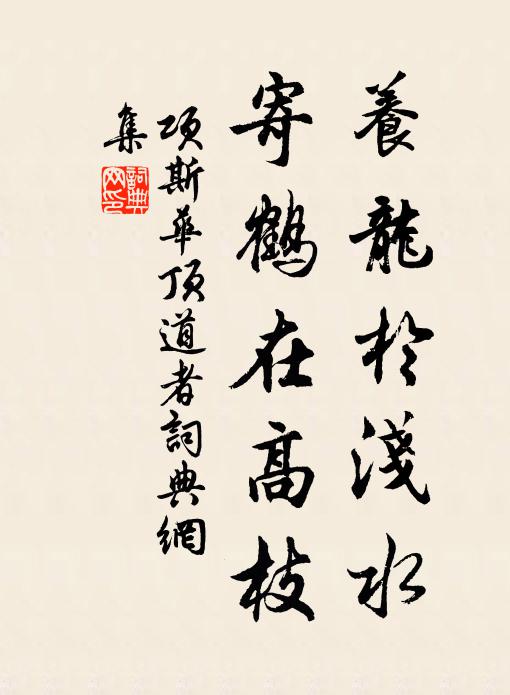 養龍於淺水
寄鶴在高枝
項斯華頂道者詞典網
集
詞典網印